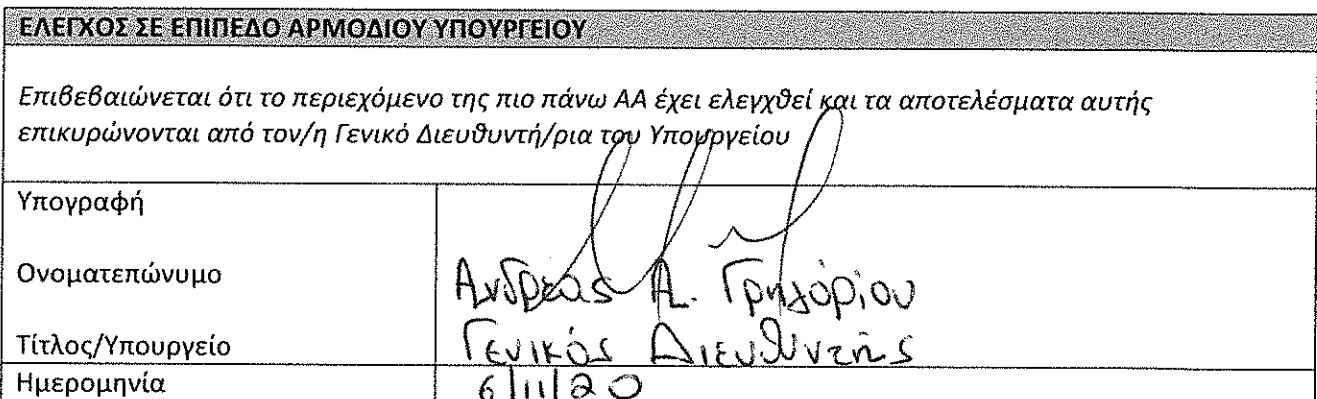 ΕΛΕΓΧΟΣ ΣΕ ΕΠΙΠΕΔΟ ΑΡΜΟΔΙΟΥ ΥΠΟΥΡΓΕΙΟΥ
Επιβεβαιώνεται ότι το περιεχόμενο της πιο πάνω ΑΑ έχει ελεγχθεί και τα αποτελέσματα αυτής
επικυρώνονται από τον/η Γενικό Διευθυντή/ρια του Υπουργείου
Υπογραφή
Ονοματεπώνυμο Ανδρέας Α. Γρηγόριου
Τίτλος/Υπουργείο Γενικός Διευθυντής
Ημερομηνία 6/11/20